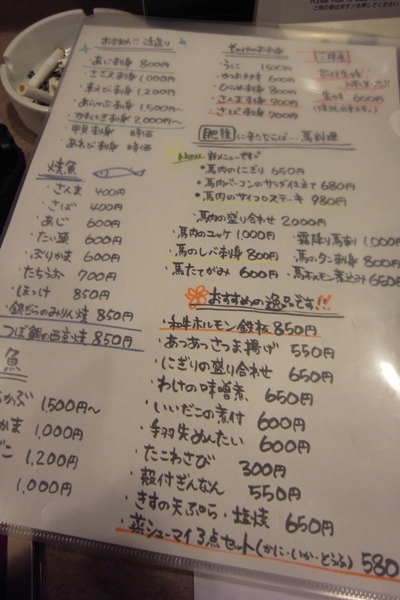 おすすめ!! 活造り
あじ刺身 800円
さざえ刺身 1000円
車えび刺身 1200円
あらかぶ刺身 1500円~
カワハギ刺身 2000円~
甲貝刺身 時価
あわび刺身 時価
焼魚
・さんま 400円
・さば 400円
・あじ 600円
・たい頭 600円
・ぶりかま 600円
・たちうお 700円
・ほっけ 850円
・銀だらのみりん焼 850円
つぼ鯛の西京焼 850円
魚
らかぶ 1,500円~
かま 1,000円
ごこ 1,200円
1,000円
・うに 1500円
・かつおタタキ 600円
・ひらめ刺身 800円
・さんま刺身 700円
・さば刺身 700円
600円
肥後に来たならば…馬料理
Menu 新メニューです
・馬肉のにぎり 650円
・馬肉ベーコンのサラダ仕立て 680円
・馬肉のサイコロステーキ 980円
・馬肉の盛り合わせ 2000円
・馬肉のユッケ 1,000円 ・霜降り馬刺 1,000円
・馬のレバ刺身 800円 ・馬のタン刺身 800円
・馬たてがみ 600円 ・馬ホルモン煮込み 650円
おすすめの逸品です!!
・和牛ホルモン鉄板 850円
・あつあつさつま揚げ 550円
・にぎりの盛り合せ 650円
・わけの味噌煮 650円
・いいだこの煮付 600円
・手羽先めんたい 600円
・たこわさび 300円
・殻付ぎんなん 550円
・きすの天ぷら・塩焼 650円
・蒸シューマイ3点セット(かに・いか・とうふ) 580